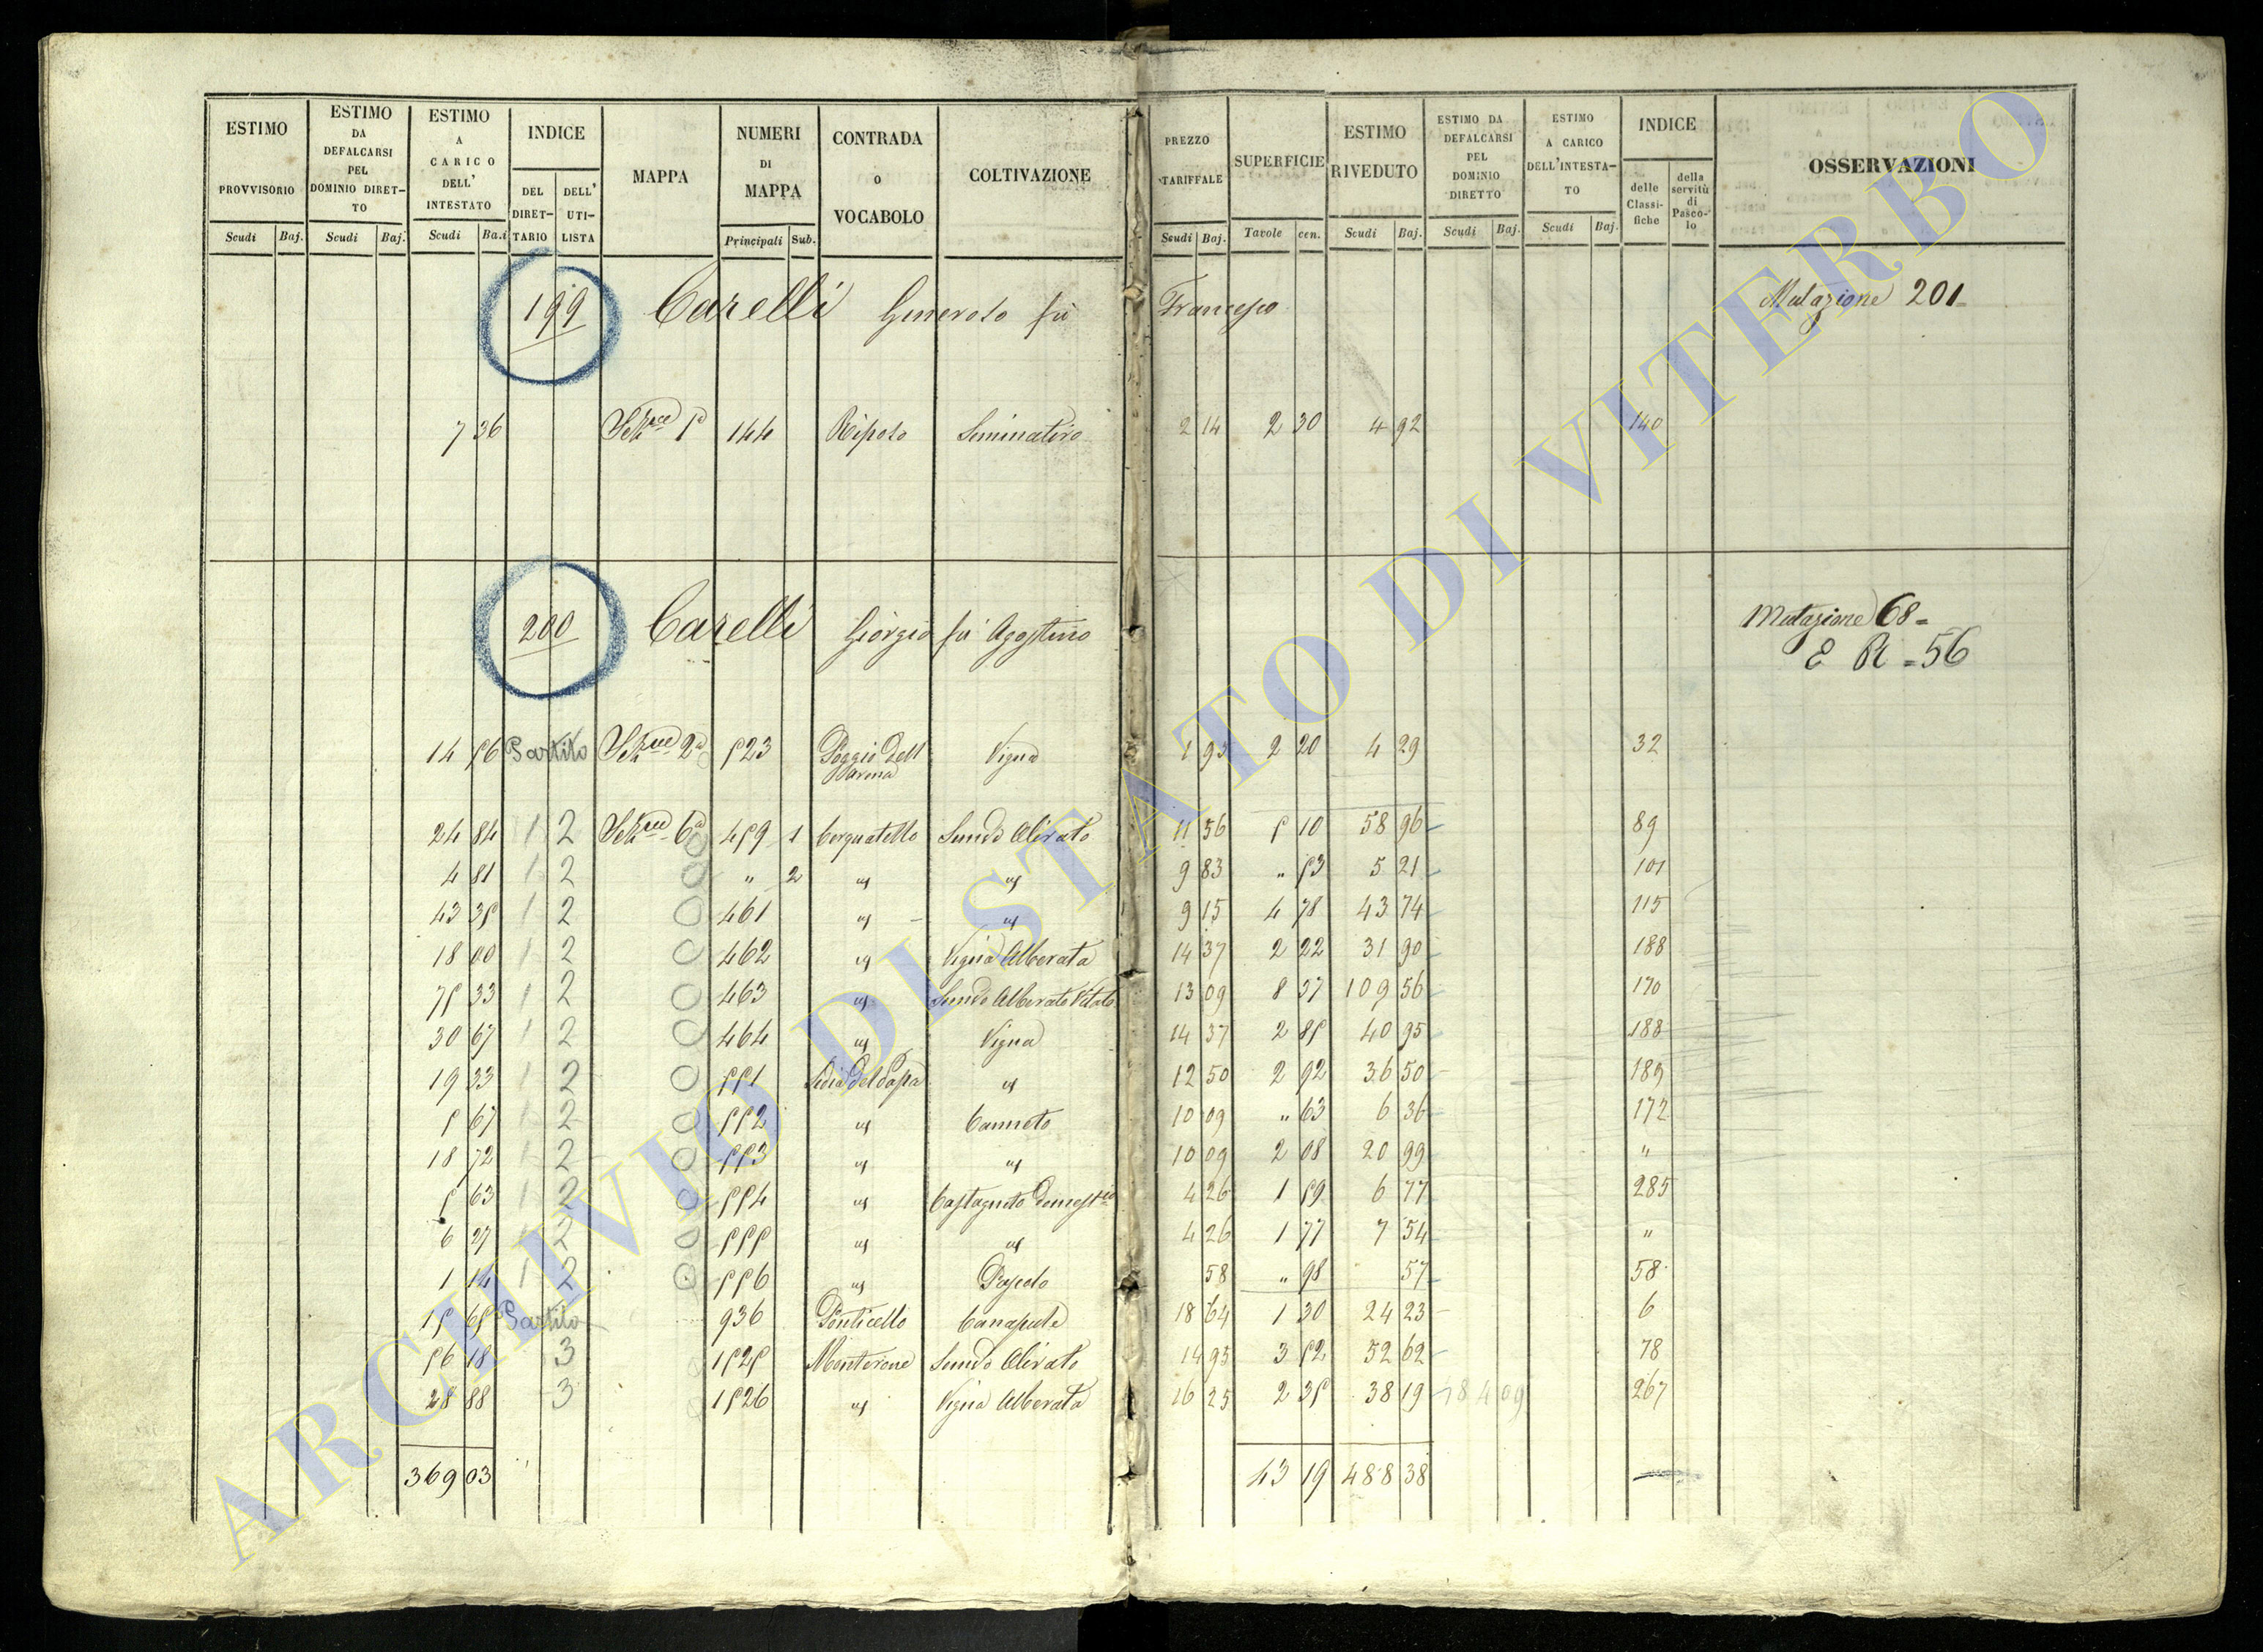 ESTIMO PROVVISORIO Scudi Baj. | ESTIMO DA DEFALCARSI PEL DOMINIO DIRET-TO Scudi Baj. | ESTIMO A CARICO DELL' INTESTATO Scudi Ba.i | INDICE DEL DIRET-TARIO DELL' UTI-LISTA | MAPPA | NUMERI DI MAPPA Principali Sub. | CONTRADA o VOCABOLO | COLTIVAZIONE | PREZZO TARIFFALE Scudi Baj. | SUPERFICIE Tavole cen. | ESTIMO RIVEDUTO Scudi Baj. | ESTIMO DA DEFALCARSI PEL DOMINIO DIRETTO Scudi Baj. | ESTIMO A CARICO DELL'INTESTA-TO Scudi Baj. | INDICE delle Classi-fiche della servitù di Pasco-lo | OSSERVAZIONI
199 Carelli Generoso fù Francesco Mutazione 201
7 36 Sezne 1a 144 Riposo Seminativo 2 14 2 30 4 92 140
200 Carelli Giorgio fù Agostino Mutazione 68 =
E R = 56
14 56 Partito Sezne 2a 523 Poggio dell Vigna 1 95 2 20 4 29 32
24 84 1 2 Sezne 6a 459 1 Cerquatello Semvo Olivato 11 56 5 10 58 96 89
4 81 1 2 " 2 " " 9 83 " 53 5 21 101
43 35 1 2 461 " " 9 15 4 78 43 74 115
18 00 1 2 462 " Vigna Alberata 14 37 2 22 31 90 188
75 33 1 2 463 " Semvo Alberato Vitato 13 09 8 37 109 56 170
30 67 1 2 464 " Vigna 14 37 2 85 40 95 188
19 33 1 2 551 Sedia del Papa " 12 50 2 92 36 50 189
5 67 1 2 552 " Canneto 10 09 " 63 6 36 172
18 72 1 2 553 " " 10 09 2 08 20 99 "
5 63 1 2 554 " Castagneto Domestco 4 26 1 59 6 77 285
6 27 1 2 555 " " 4 26 1 77 7 54 "
1 14 1 2 556 " Pascolo 58 " 98 57 58
15 65 Partito 936 Ponticello Canapule 18 64 1 30 24 23 6
56 18 3 1525 Monterone Semvo Olivato 14 95 3 52 52 62 78
28 88 3 1526 " Vigna Alberata 16 25 2 35 38 19 484 09 267
369 03 43 19 488 38
ARCHIVIO DI STATO DI VITERBO